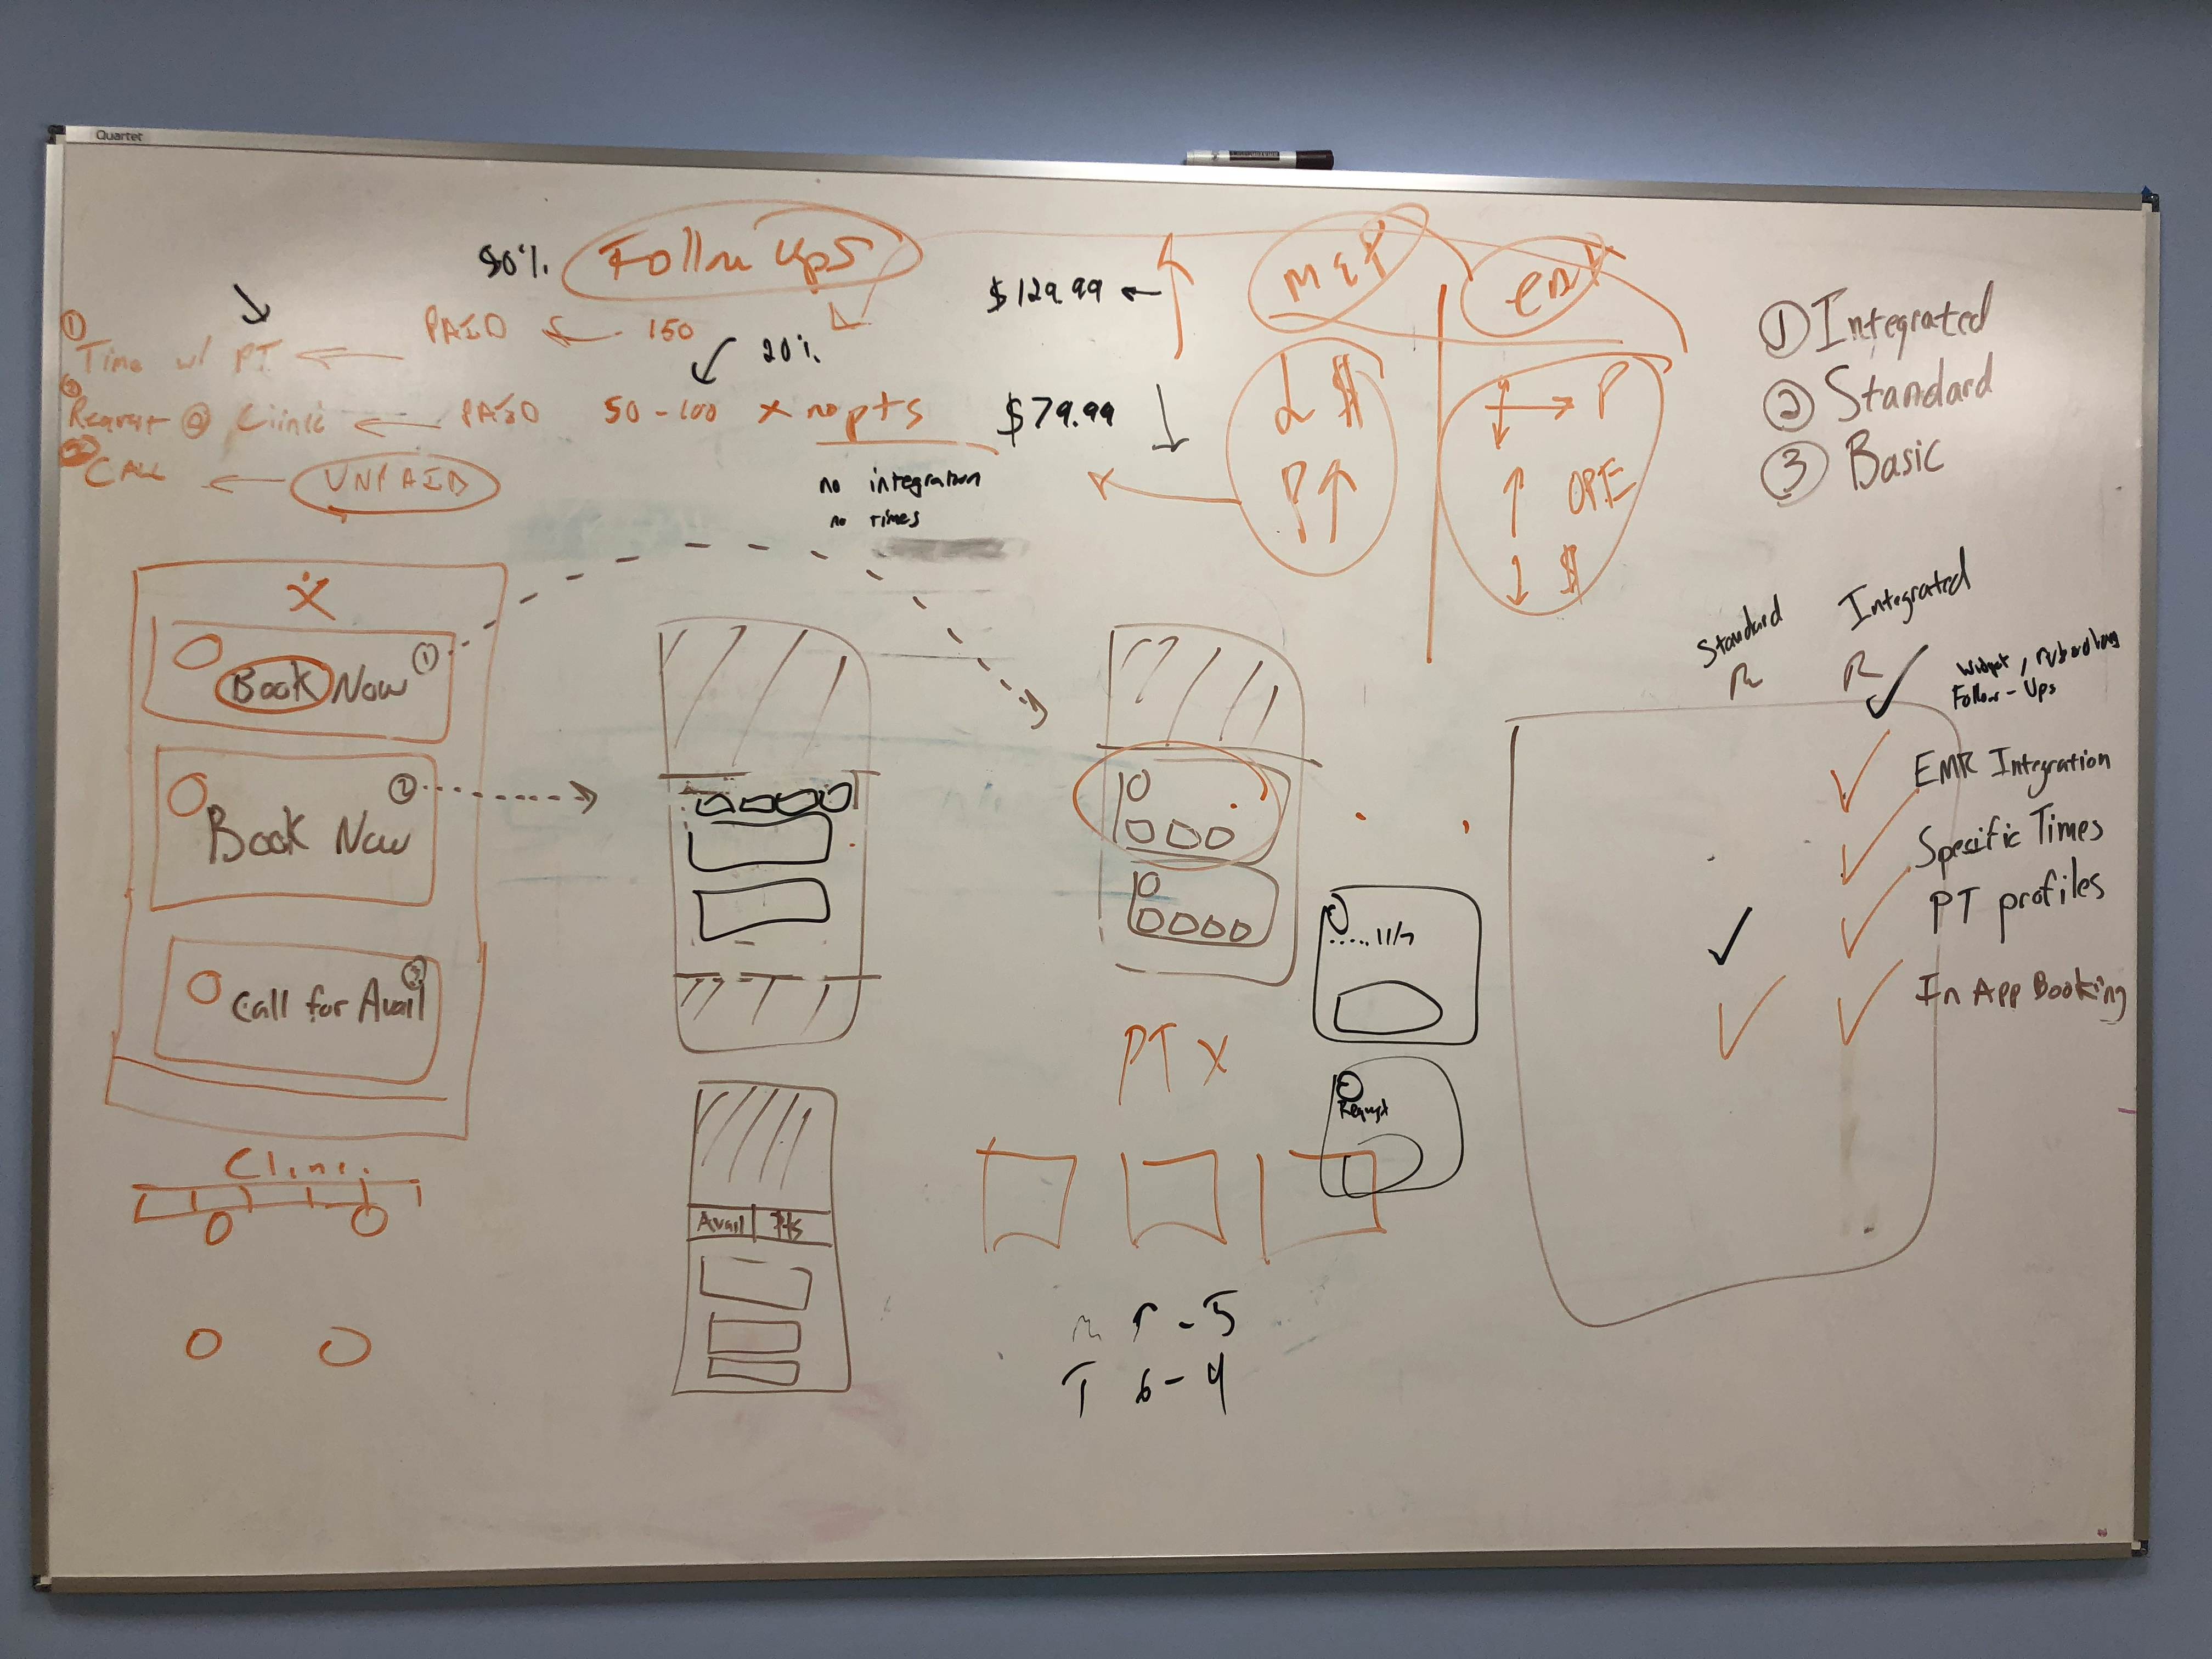 Quartet
80%
Follow Ups
① Time w/ PT ← PAID ← 150
20%
② Request @ Clinic ← PAID 50-100 x no pts
CALL ← UNPAID
no integration
no times
$129.99 ←
$79.99
$
P↑
→ P
↑ OPE
↓ $
① Integrated
② Standard
③ Basic
Book Now ①
Book Now ②
Call for Avail ③
Avail
Pts
PT X
11/7
Request
5
T 6-4
Standard
Integrated
Widget,
Follow-Ups
EMR Integration
Spesific Times
PT profiles
In App Booking